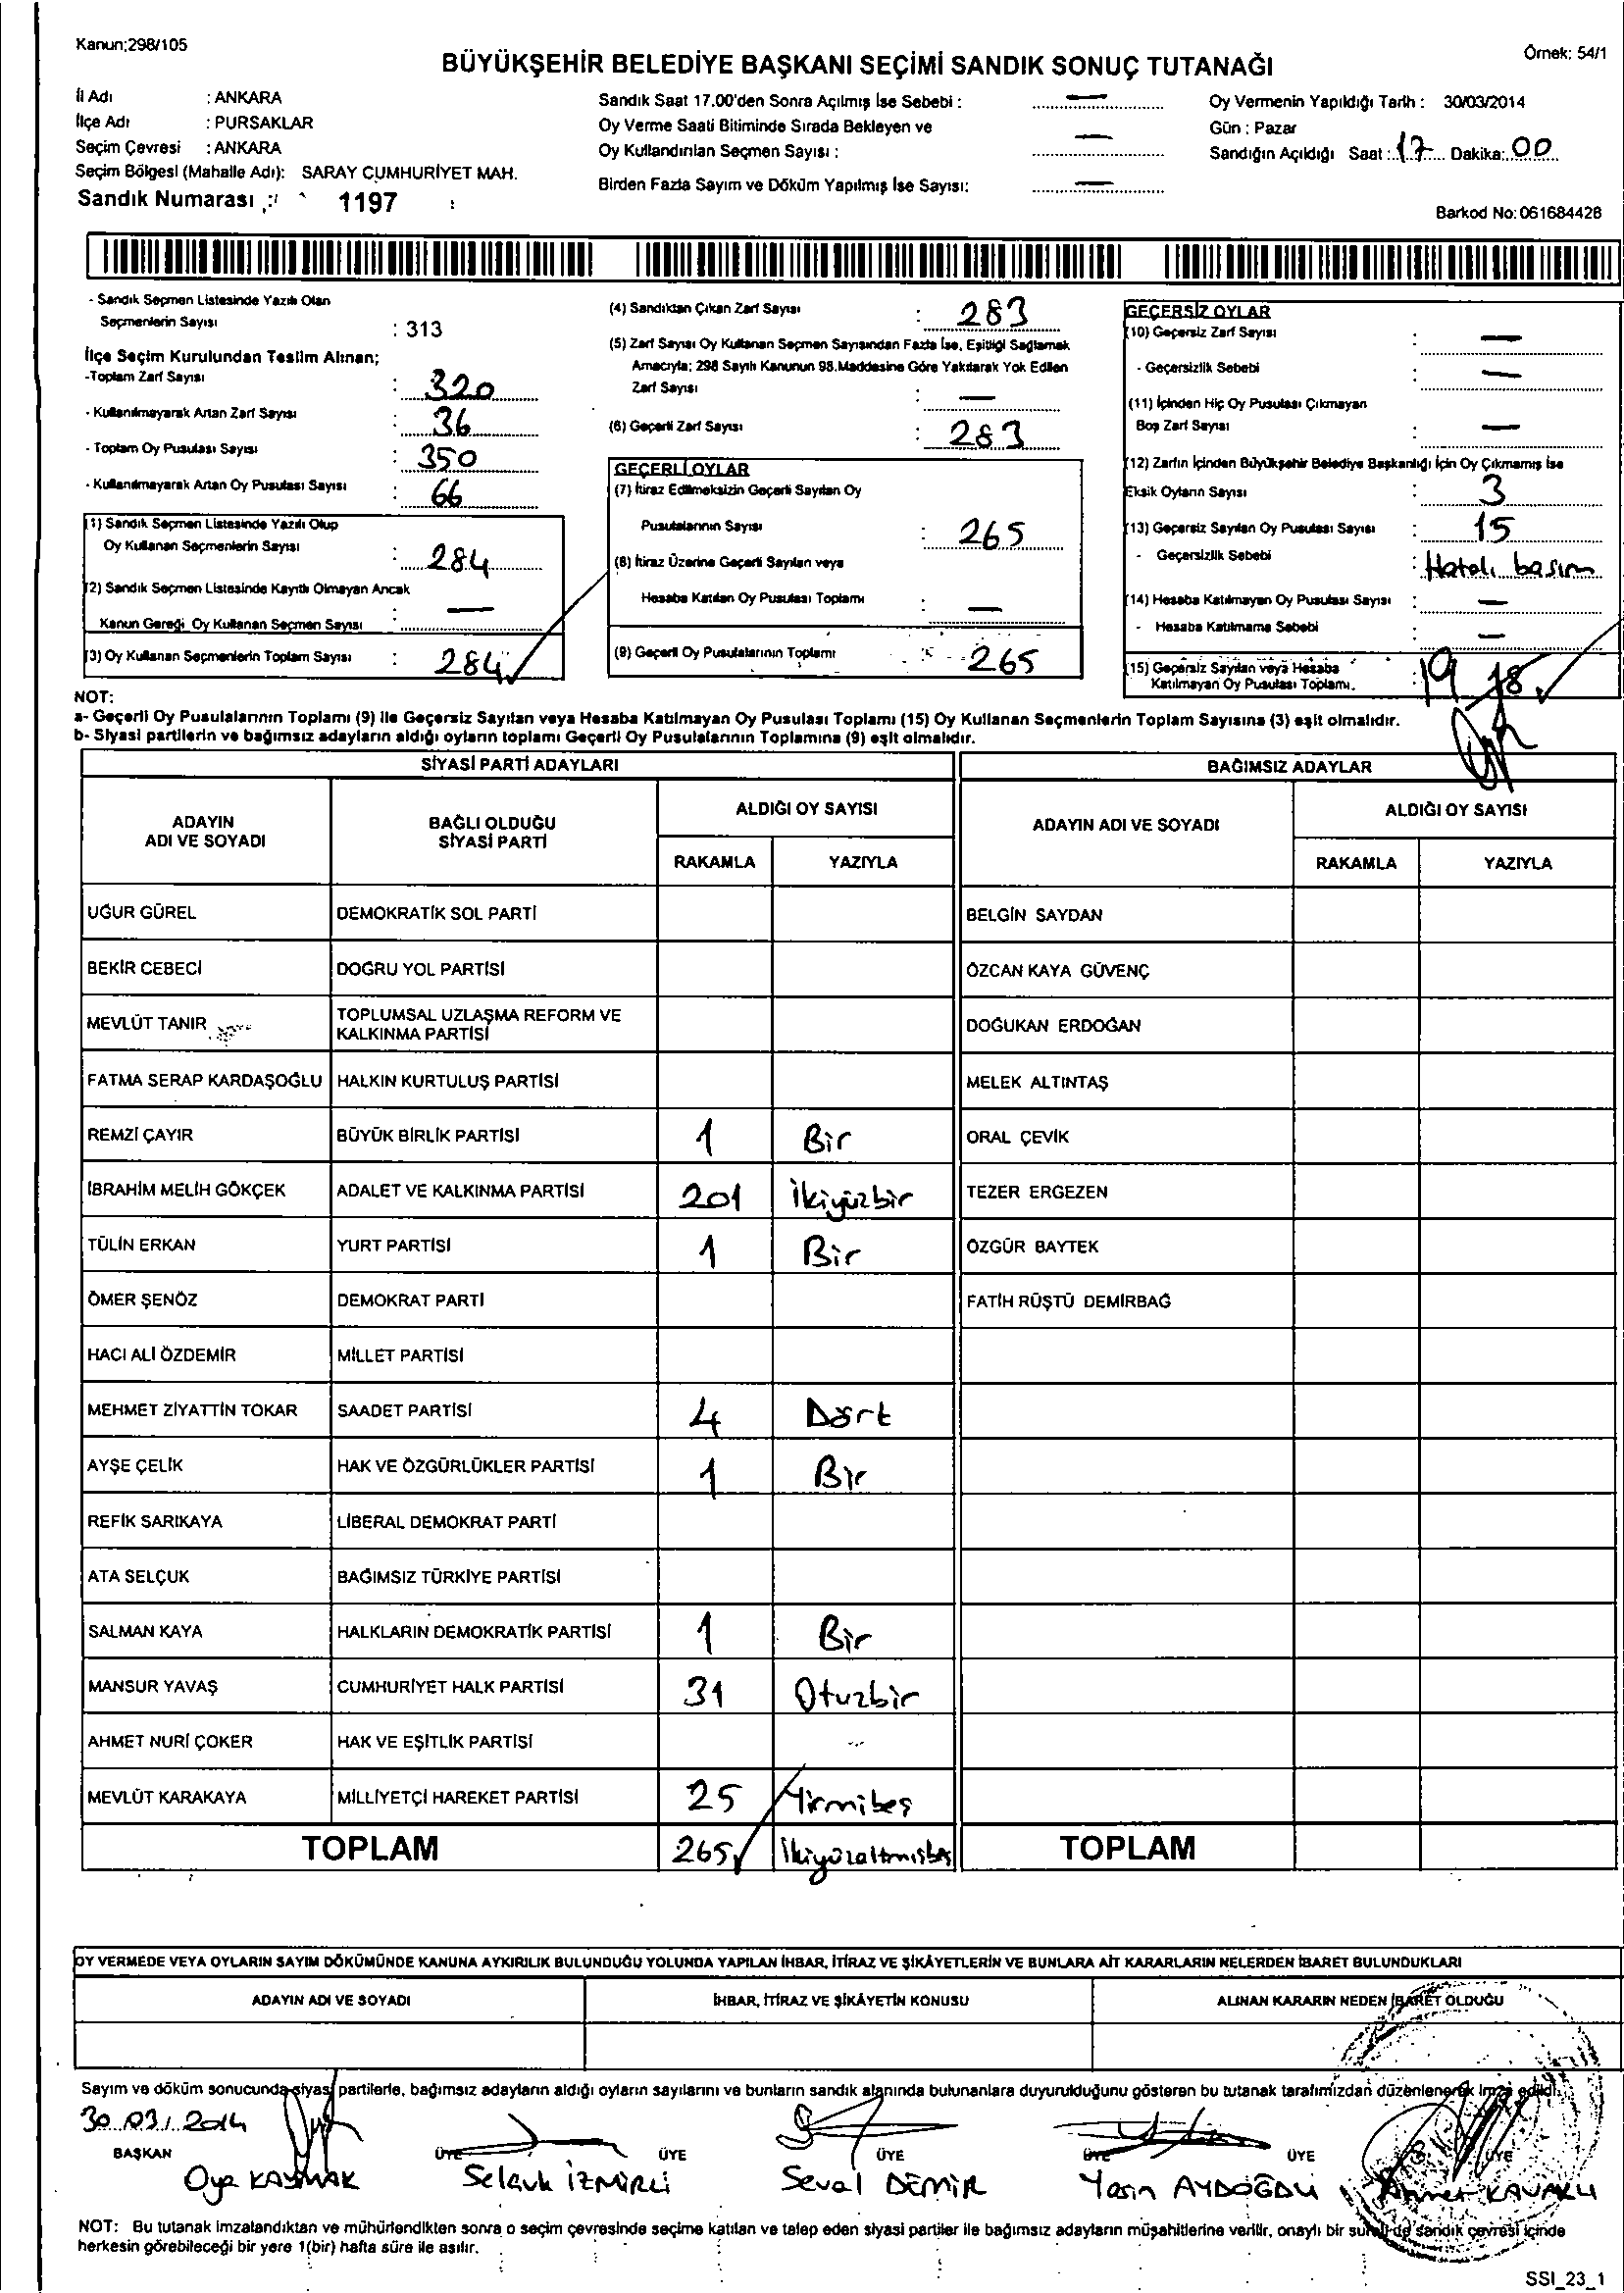 Kanun;298/105
Örnek: 54/1
BÜYÜKŞEHİR BELEDİYE BAŞKANI SEÇİMİ SANDIK SONUÇ TUTANAĞI
İl Adı : ANKARA
İlçe Adı : PURSAKLAR
Seçim Çevresi : ANKARA
Seçim Bölgesi (Mahalle Adı): SARAY CUMHURİYET MAH.
Sandık Numarası : 1197
Sandık Saat 17.00'den Sonra Açılmış İse Sebebi : —
Oy Verme Saati Bitiminde Sırada Bekleyen ve
Oy Kullandırılan Seçmen Sayısı : —
Birden Fazla Sayım ve Döküm Yapılmış İse Sayısı: —
Oy Vermenin Yapıldığı Tarih : 30/03/2014
Gün : Pazar
Sandığın Açıldığı Saat : 17 Dakika: 00
Barkod No: 061684428
- Sandık Seçmen Listesinde Yazılı Olan
Seçmenlerin Sayısı : 313
İlçe Seçim Kurulundan Teslim Alınan;
-Toplam Zarf Sayısı : 320
- Kullanılmayarak Artan Zarf Sayısı : 36
- Toplam Oy Pusulası Sayısı : 350
- Kullanılmayarak Artan Oy Pusulası Sayısı : 66
(1) Sandık Seçmen Listesinde Yazılı Olup
Oy Kullanan Seçmenlerin Sayısı : 284
(2) Sandık Seçmen Listesinde Kayıtlı Olmayan Ancak
Kanun Gereği Oy Kullanan Seçmen Sayısı : —
(3) Oy Kullanan Seçmenlerin Toplam Sayısı : 284
(4) Sandıktan Çıkan Zarf Sayısı : 283
(5) Zarf Sayısı Oy Kullanan Seçmen Sayısından Fazla İse, Eşitliği Sağlamak
Amacıyla; 298 Sayılı Kanunun 98.Maddesine Göre Yakılarak Yok Edilen
Zarf Sayısı : —
(6) Geçerli Zarf Sayısı : 283
GEÇERLİ OYLAR
(7) İtiraz Edilmeksizin Geçerli Sayılan Oy
Pusulalarının Sayısı : 265
(8) İtiraz Üzerine Geçerli Sayılan veya
Hesaba Katılan Oy Pusulası Toplamı : —
(9) Geçerli Oy Pusulalarının Toplamı : 265
GEÇERSİZ OYLAR
(10) Geçersiz Zarf Sayısı : —
- Geçersizlik Sebebi : —
(11) İçinden Hiç Oy Pusulası Çıkmayan
Boş Zarf Sayısı : —
(12) Zarfın İçinden Büyükşehir Belediye Başkanlığı İçin Oy Çıkmamış İse
Eksik Oyların Sayısı : 3
(13) Geçersiz Sayılan Oy Pusulası Sayısı : 15
- Geçersizlik Sebebi : Hatalı basım
(14) Hesaba Katılmayan Oy Pusulası Sayısı : —
- Hesaba Katılmama Sebebi : —
(15) Geçersiz Sayılan veya Hesaba
Katılmayan Oy Pusulası Toplamı. : 19 18
NOT:
a- Geçerli Oy Pusulalarının Toplamı (9) ile Geçersiz Sayılan veya Hesaba Katılmayan Oy Pusulası Toplamı (15) Oy Kullanan Seçmenlerin Toplam Sayısına (3) eşit olmalıdır.
b- Siyasi partilerin ve bağımsız adayların aldığı oyların toplamı Geçerli Oy Pusulalarının Toplamına (9) eşit olmalıdır.
SİYASİ PARTİ ADAYLARI
ADAYIN ADI VE SOYADI BAĞLI OLDUĞU SİYASİ PARTİ ALDIĞI OY SAYISI
RAKAMLA YAZIYLA
UĞUR GÜREL DEMOKRATİK SOL PARTİ
BEKİR CEBECİ DOĞRU YOL PARTİSİ
MEVLÜT TANIR TOPLUMSAL UZLAŞMA REFORM VE
KALKINMA PARTİSİ
FATMA SERAP KARDAŞOĞLU HALKIN KURTULUŞ PARTİSİ
REMZİ ÇAYIR BÜYÜK BİRLİK PARTİSİ 1 Bir
İBRAHİM MELİH GÖKÇEK ADALET VE KALKINMA PARTİSİ 201 İkiyüzbir
TÜLİN ERKAN YURT PARTİSİ 1 Bir
ÖMER ŞENÖZ DEMOKRAT PARTİ
HACI ALİ ÖZDEMİR MİLLET PARTİSİ
MEHMET ZİYATTİN TOKAR SAADET PARTİSİ 4 Dört
AYŞE ÇELİK HAK VE ÖZGÜRLÜKLER PARTİSİ 1 Bir
REFİK SARIKAYA LİBERAL DEMOKRAT PARTİ
ATA SELÇUK BAĞIMSIZ TÜRKİYE PARTİSİ
SALMAN KAYA HALKLARIN DEMOKRATİK PARTİSİ 1 Bir
MANSUR YAVAŞ CUMHURİYET HALK PARTİSİ 31 Otuzbir
AHMET NURİ ÇOKER HAK VE EŞİTLİK PARTİSİ
MEVLÜT KARAKAYA MİLLİYETÇİ HAREKET PARTİSİ 25 Yirmibeş
TOPLAM 265 İkiyüzaltmışbeş
BAĞIMSIZ ADAYLAR
ADAYIN ADI VE SOYADI ALDIĞI OY SAYISI
RAKAMLA YAZIYLA
BELGİN SAYDAN
ÖZCAN KAYA GÜVENÇ
DOĞUKAN ERDOĞAN
MELEK ALTINTAŞ
ORAL ÇEVİK
TEZER ERGEZEN
ÖZGÜR BAYTEK
FATİH RÜŞTÜ DEMİRBAĞ
TOPLAM
OY VERMEDE VEYA OYLARIN SAYIM DÖKÜMÜNDE KANUNA AYKIRILIK BULUNDUĞU YOLUNDA YAPILAN İHBAR, İTİRAZ VE ŞİKÂYETLERİN VE BUNLARA AİT KARARLARIN NELERDEN İBARET BULUNDUKLARI
ADAYIN ADI VE SOYADI İHBAR, İTİRAZ VE ŞİKÂYETİN KONUSU ALINAN KARARIN NEDEN İBARET OLDUĞU
Sayım ve döküm sonucunda siyasi partilerle, bağımsız adayların aldığı oyların sayılarını ve bunların sandık alanında bulunanlara duyurulduğunu gösteren bu tutanak tarafımızdan düzenlenerek imza edildi.
30.03.2014
BAŞKAN ÜYE ÜYE ÜYE ÜYE ÜYE ÜYE
Oya KAYNAK Selçuk İZMİRLİ Seval DEMİR Yasin AYDOĞDU Ahmet KAVAKLI
NOT: Bu tutanak imzalandıktan ve mühürlendikten sonra o seçim çevresinde seçime katılan ve talep eden siyasi partiler ile bağımsız adayların müşahitlerine verilir, onaylı bir sureti de sandık çevresi içinde
herkesin görebileceği bir yere 1(bir) hafta süre ile asılır.
SSI_23_1